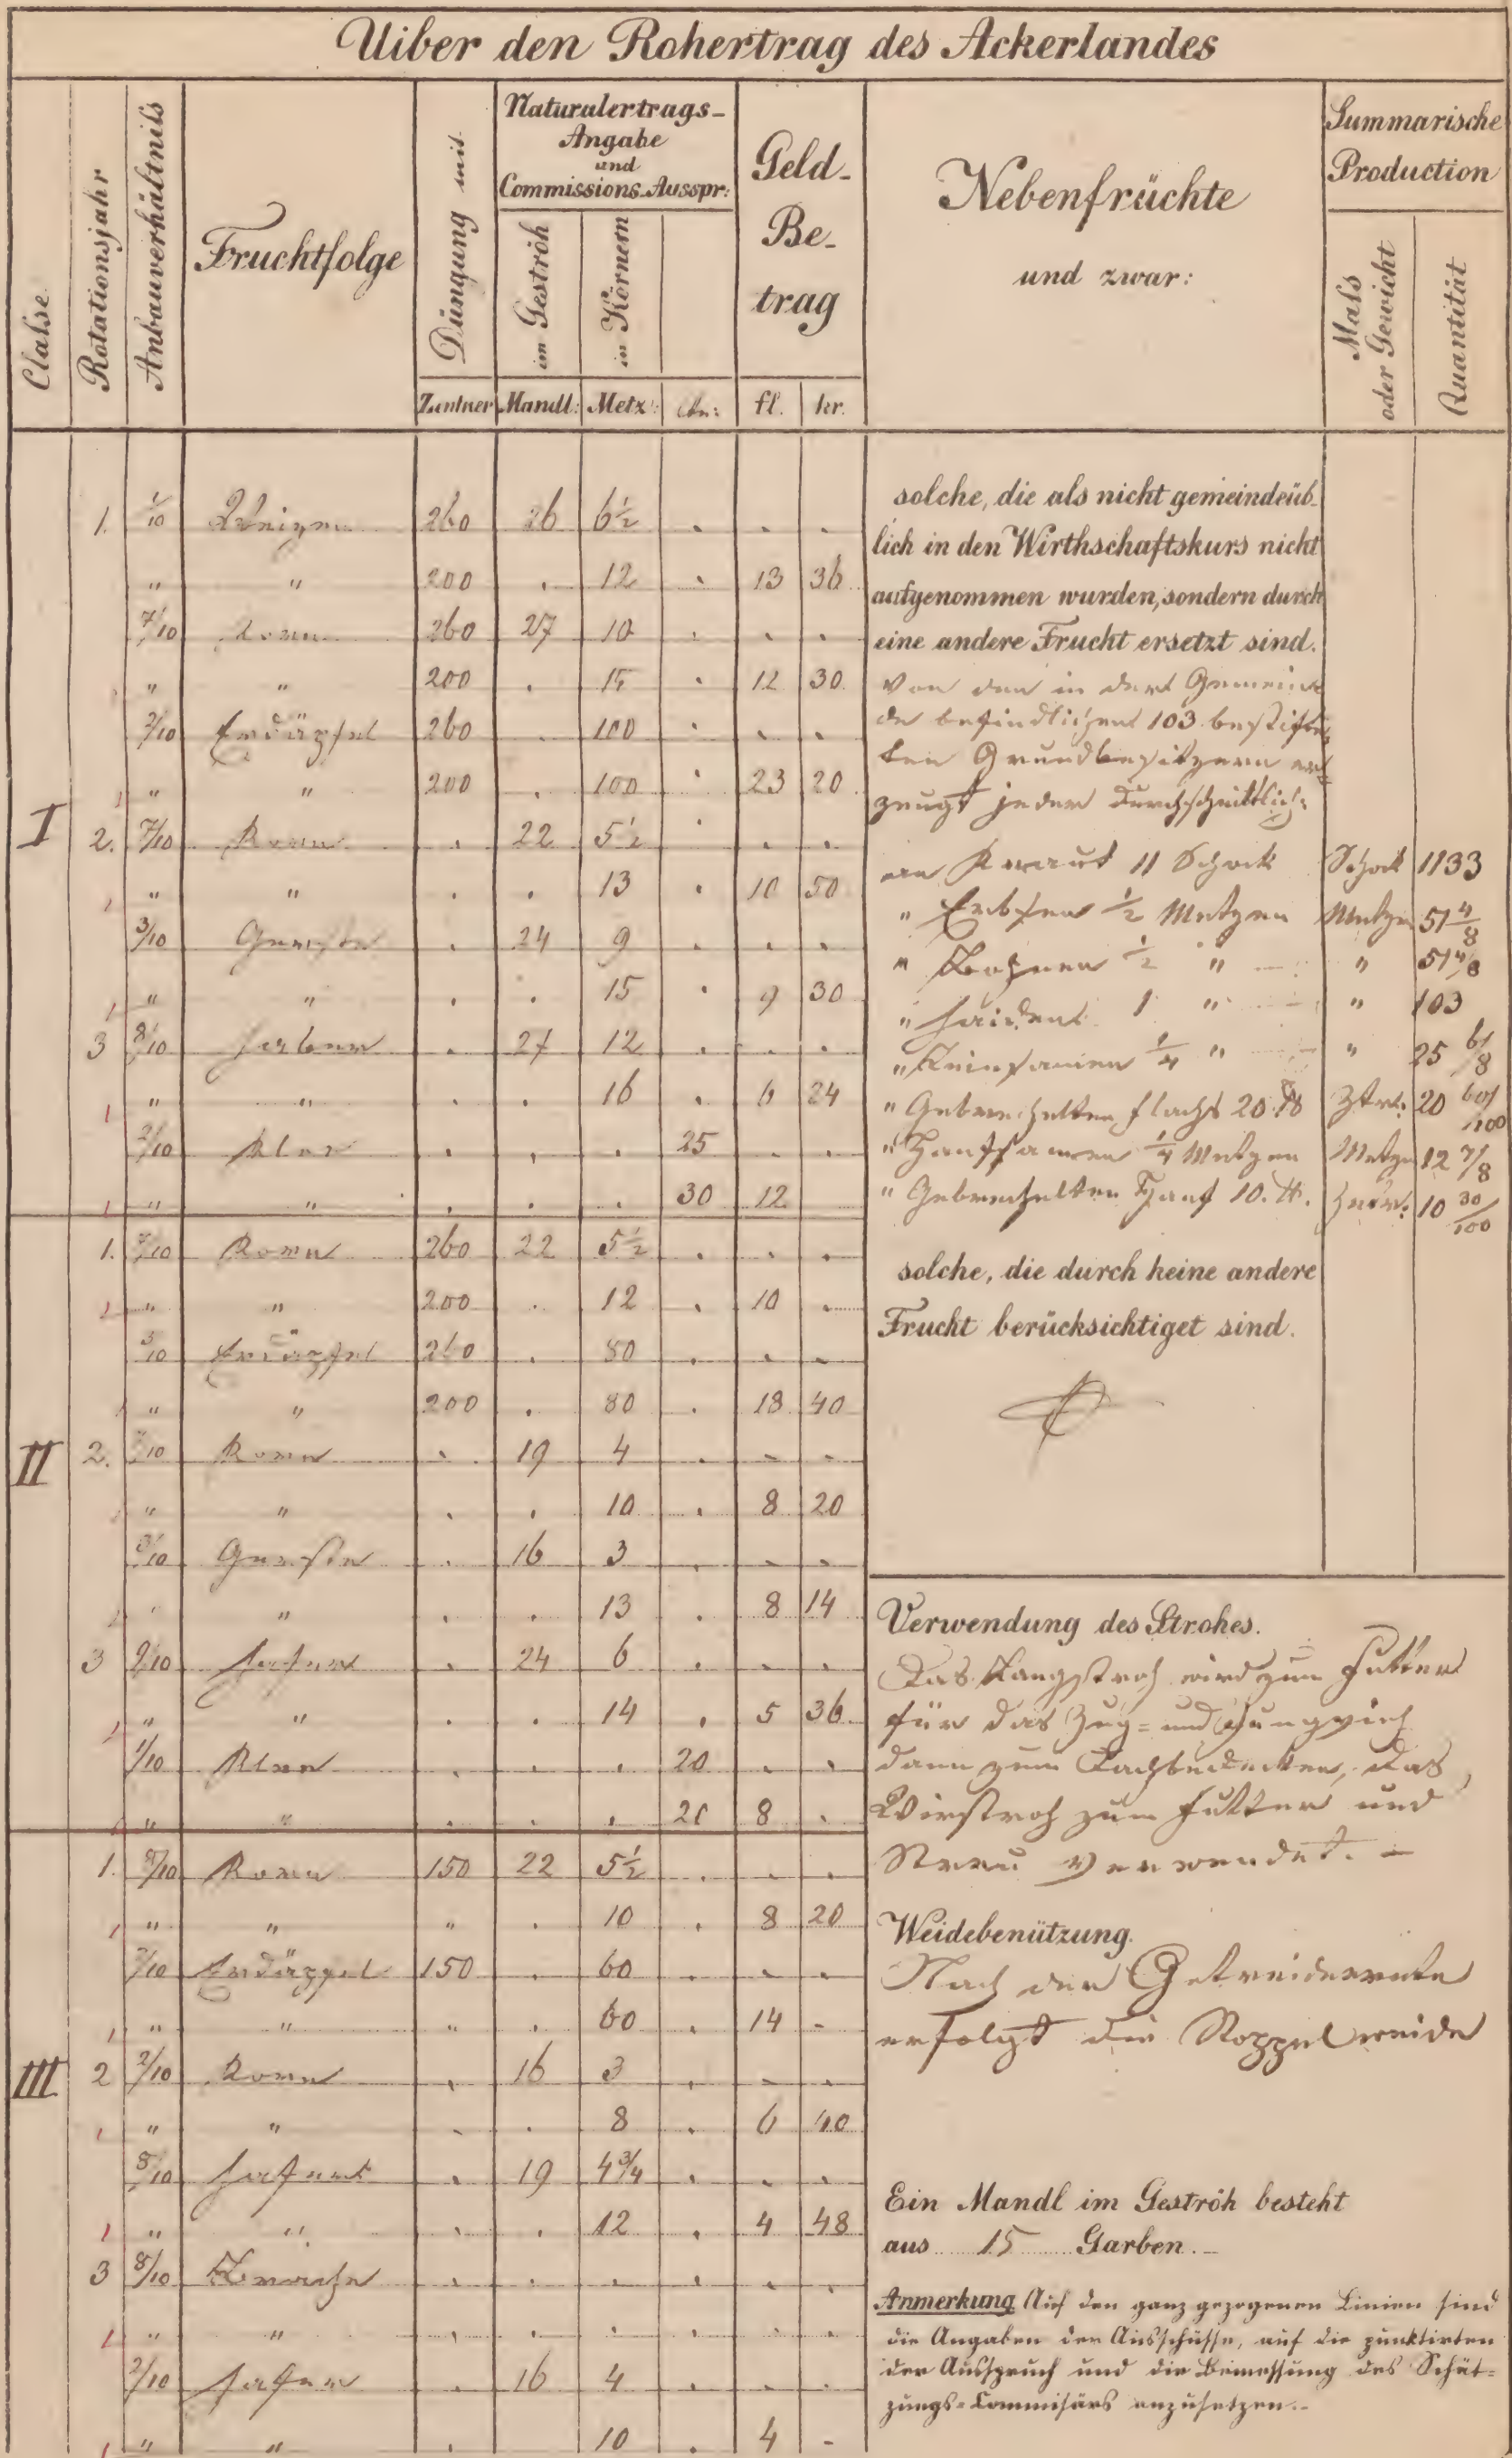 Uiber den Rohertrag des Ackerlandes
Classe
Rotationsjahr
Anbauverhältniß
Fruchtfolge
Düngung mit
Zentner
Naturalertrags-
Angabe
und
Commissions-Ausspr:
im Geströh
in Körnern
Mandl: Metz: Ctn:
Geld-
Be-
trag
fl. kr.
Nebenfrüchte
und zwar:
Summarische
Production
Maß
oder Gewicht
Quantität
I
1. 1/10 Weizen 260 26 6½ . . .
" " 200 . 12 . 13 36
7/10 Korn 260 27 10 . . .
" " 200 . 15 . 12 30
2/10 Erdäpfel 260 . 100 . . .
" " 200 . 100 . 23 20
2. 7/10 Korn . 22 5½ . . .
" " . . 13 . 10 50
3/10 Gerste . 24 9 . . .
" " . . 15 . 9 30
3 8/10 Haber . 27 12 . . .
" " . . 16 . 6 24
2/10 Klee . . . 25 . .
" " . . . 30 12
II
1. 7/10 Korn 260 22 5½ . . .
" " 200 . 12 . 10 .
3/10 Erdäpfel 260 . 80 . . .
" " 200 . 80 . 18 40
2. 7/10 Korn . 19 4 . . .
" " . . 10 . 8 20
3/10 Gerste . 16 3 . . .
" " . . 13 . 8 14
3 9/10 Hafer . 24 6 . . .
" " . . 14 . 5 36
1/10 Klee . . . 20 . .
" " . . . 20 8 .
III
1. 8/10 Korn 150 22 5½ . . .
" " " . 10 . 8 20
2/10 Erdäpfel 150 . 60 . . .
" " " . 60 . 14 -
2 2/10 Korn . 16 3 . . .
" " . . 8 . 6 40
8/10 Hafer . 19 4¾ . . .
" " . . 12 . 4 48
3 8/10 Brache . . . . . .
" " . . . . . .
2/10 Hafer . 16 4 . . .
" " . . 10 . 4 -
solche, die als nicht gemeindeüb-
lich in den Wirthschaftskurs nicht
aufgenommen wurden, sondern durch
eine andere Frucht ersetzt sind.
Von den in der Gemein
de befindlichen 103 bestifte
ten Grundbesitzern er-
zeugt jeder durchschnittlich:
an Kraut 11 Schock Schock 1133
" Erbsen ½ Metzen Metzen 51 4/8
" Bohnen ½ " " 51 4/8
" Haiden 1 " " 103
" Leinsamen ¼ " " 25 6/8
" Gebrechelten Flachs 20 ℔ Ztr: 20 60/100
" Hanfsamen ¼ Metzen Metzen 12 7/8
" Gebrechelten Hanf 10 ℔. Zentr: 10 30/100
solche, die durch keine andere
Frucht berücksichtiget sind.
Verwendung des Strohes.
Das Langstroh wird zum Futter
für das Zug- und Jungvieh
dann zum Dachbedecken, das
Wirrstroh zum Futter und
Streu verwendet. -
Weidebenützung.
Nach der Getreideernte
erfolgt die Stoppelweide
Ein Mandl im Geströh besteht
aus 15 Garben. -
Anmerkung Auf den ganz gezogenen Linien sind
die Angaben der Ausschüsse, auf die punktirten
der Ausspruch und die Bemessung des Schät-
zungs-Commisärs anzusetzen. -